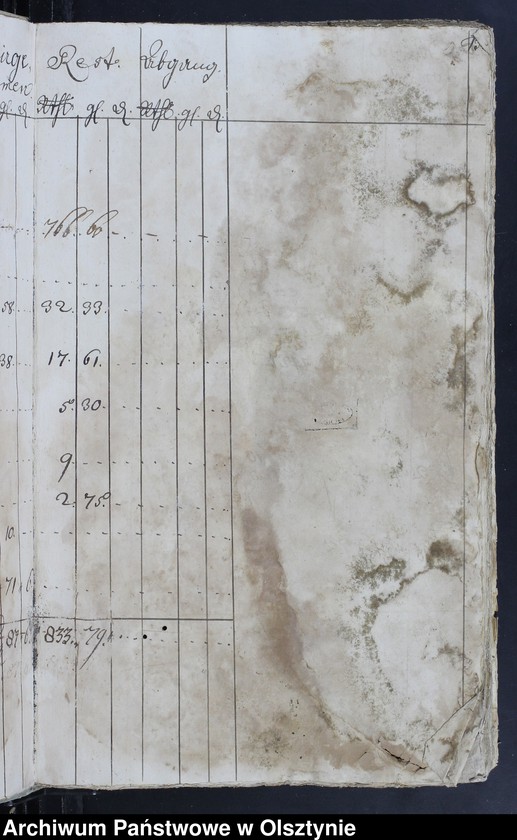 Rest. Abgang.
Rthl. gl. d. Rthl. gl. d.
766. 60. -
58. 32. 33.
38. 17. 61.
5. 30.
9.
2. 75.
10.
71. 6
87 6 833. 79.
Archiwum Państwowe w Olsztynie